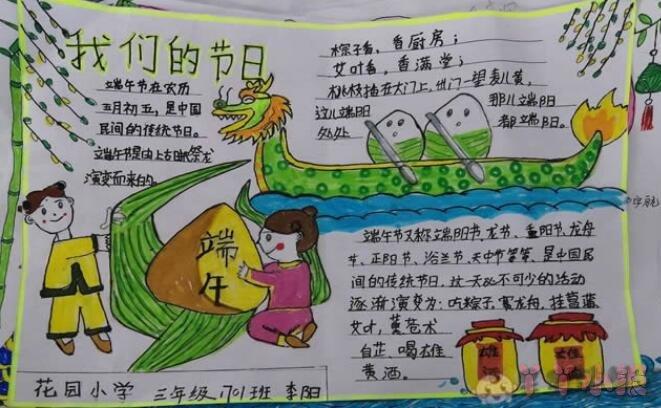 我们的节日
端午节在农历
五月初五，是中国
民间的传统节日。
端午节是由上古时祭龙
演变而来的
粽子香，香厨房；
艾叶香，香满堂；
桃枝插在大门上，出门一望麦儿黄，
这儿端阳
处处
那儿端阳
都端阳。
端午
端午节又称端阳节、龙节、重阳节、龙舟
节、正阳节、浴兰节、天中节等等，是中国民
间的传统节日，这一天必不可少的活动
逐渐演变为：吃粽子，赛龙舟，挂菖蒲
艾叶，薰苍术
白芷，喝雄
黄酒。
雄
酒
雄
花园小学 三年级 1701班 李阳
丫丫